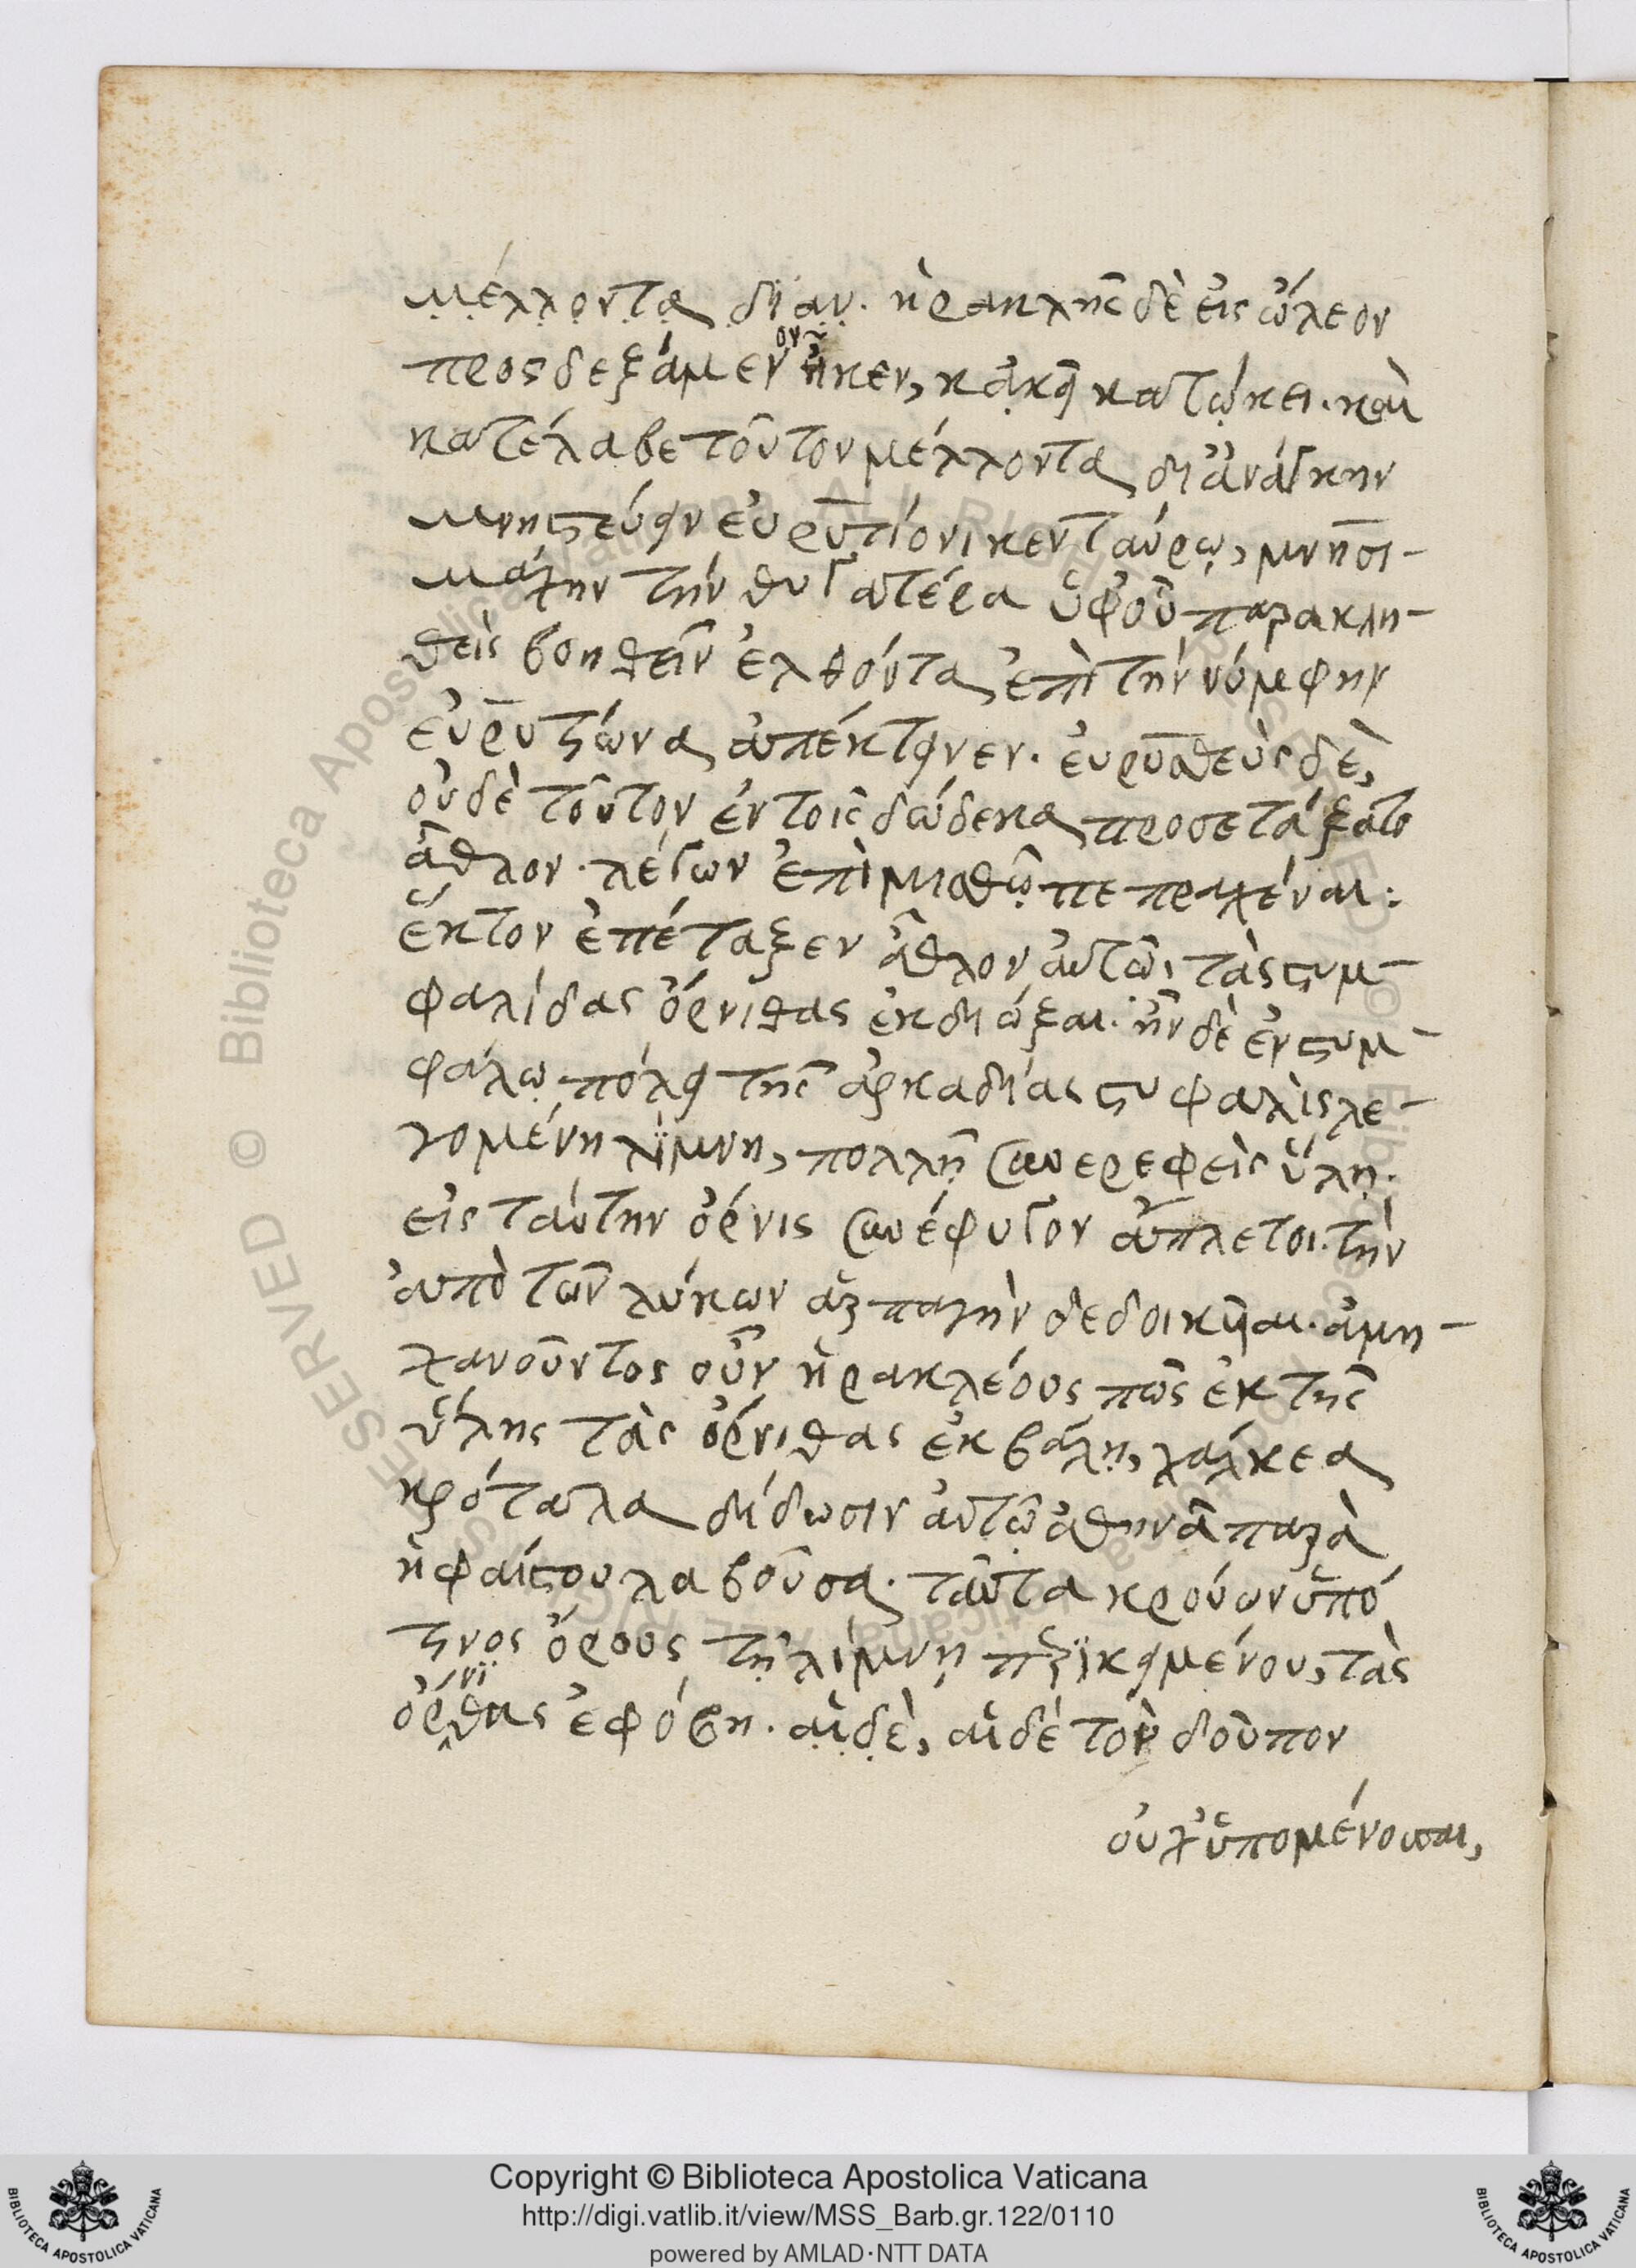 μέλλοντα δι' αν. ἡρακλῆς δὲ εἰς ὤλεον
προςδεξάμενον ἧκεν, κἀκεῖ κατώκει. καὶ
κατέλαβε τοῦτον μέλλοντα δι' ἀνάγκην
μνηστεύειν εὐρυτίονι κενταύρῳ, μνησι-
μάχην τὴν θυγατέρα ὑφ' οὗ παρακλη-
θεὶς βοηθεῖν ἐλθόντα ἐπὶ τὴν νύμφην
εὐρυτίωνα ἀπέκτεινεν. εὐρυσθεὺς δὲ,
οὐδὲ τοῦτον ἐν τοῖς δώδεκα προσετάξατο
ἆθλον. λέγων ἐπὶ μισθῷ πεπραχέναι:
ἕκτον ἐπέταξεν ἆθλον αὐτῶι τὰς στυμ-
φαλίδας ὄρνιθας ἐκδιώξαι. ἦν δὲ ἐν στυμ-
φάλῳ πόλει τῆς ἀρκαδίας στυφαλὶς λε-
γομένη λίμνη, πολλῇ συνερεφεὶς ὕλῃ.
εἰς ταύτην ὄρνις συνέφυγον ἄπλετοι. τὴν
ἀπὸ τῶν λύκων ἁρπαγὴν δεδοικυῖαι. ἀμη-
χανοῦντος οὖν ἡρακλέους πῶς ἐκ τῆς
ὕλης τὰς ὄρνιθας ἐκβάλῃ, χάλκεα
κρόταλα δίδωσιν αὐτῷ ἀθηνᾶ παρὰ
ἡφαίστου λαβοῦσα. ταῦτα κρούων ὑπό
τινος ὄρους τῇ λίμνῃ περικειμένου, τὰς
ὄρνιθας ἐφόβη. αἱ δὲ, αἱ δὲ τὸν δοῦπον
οὐχ ὑπομένουσαι,
Copyright © Biblioteca Apostolica Vaticana
http://digi.vatlib.it/view/MSS_Barb.gr.122/0110
powered by AMLAD·NTT DATA